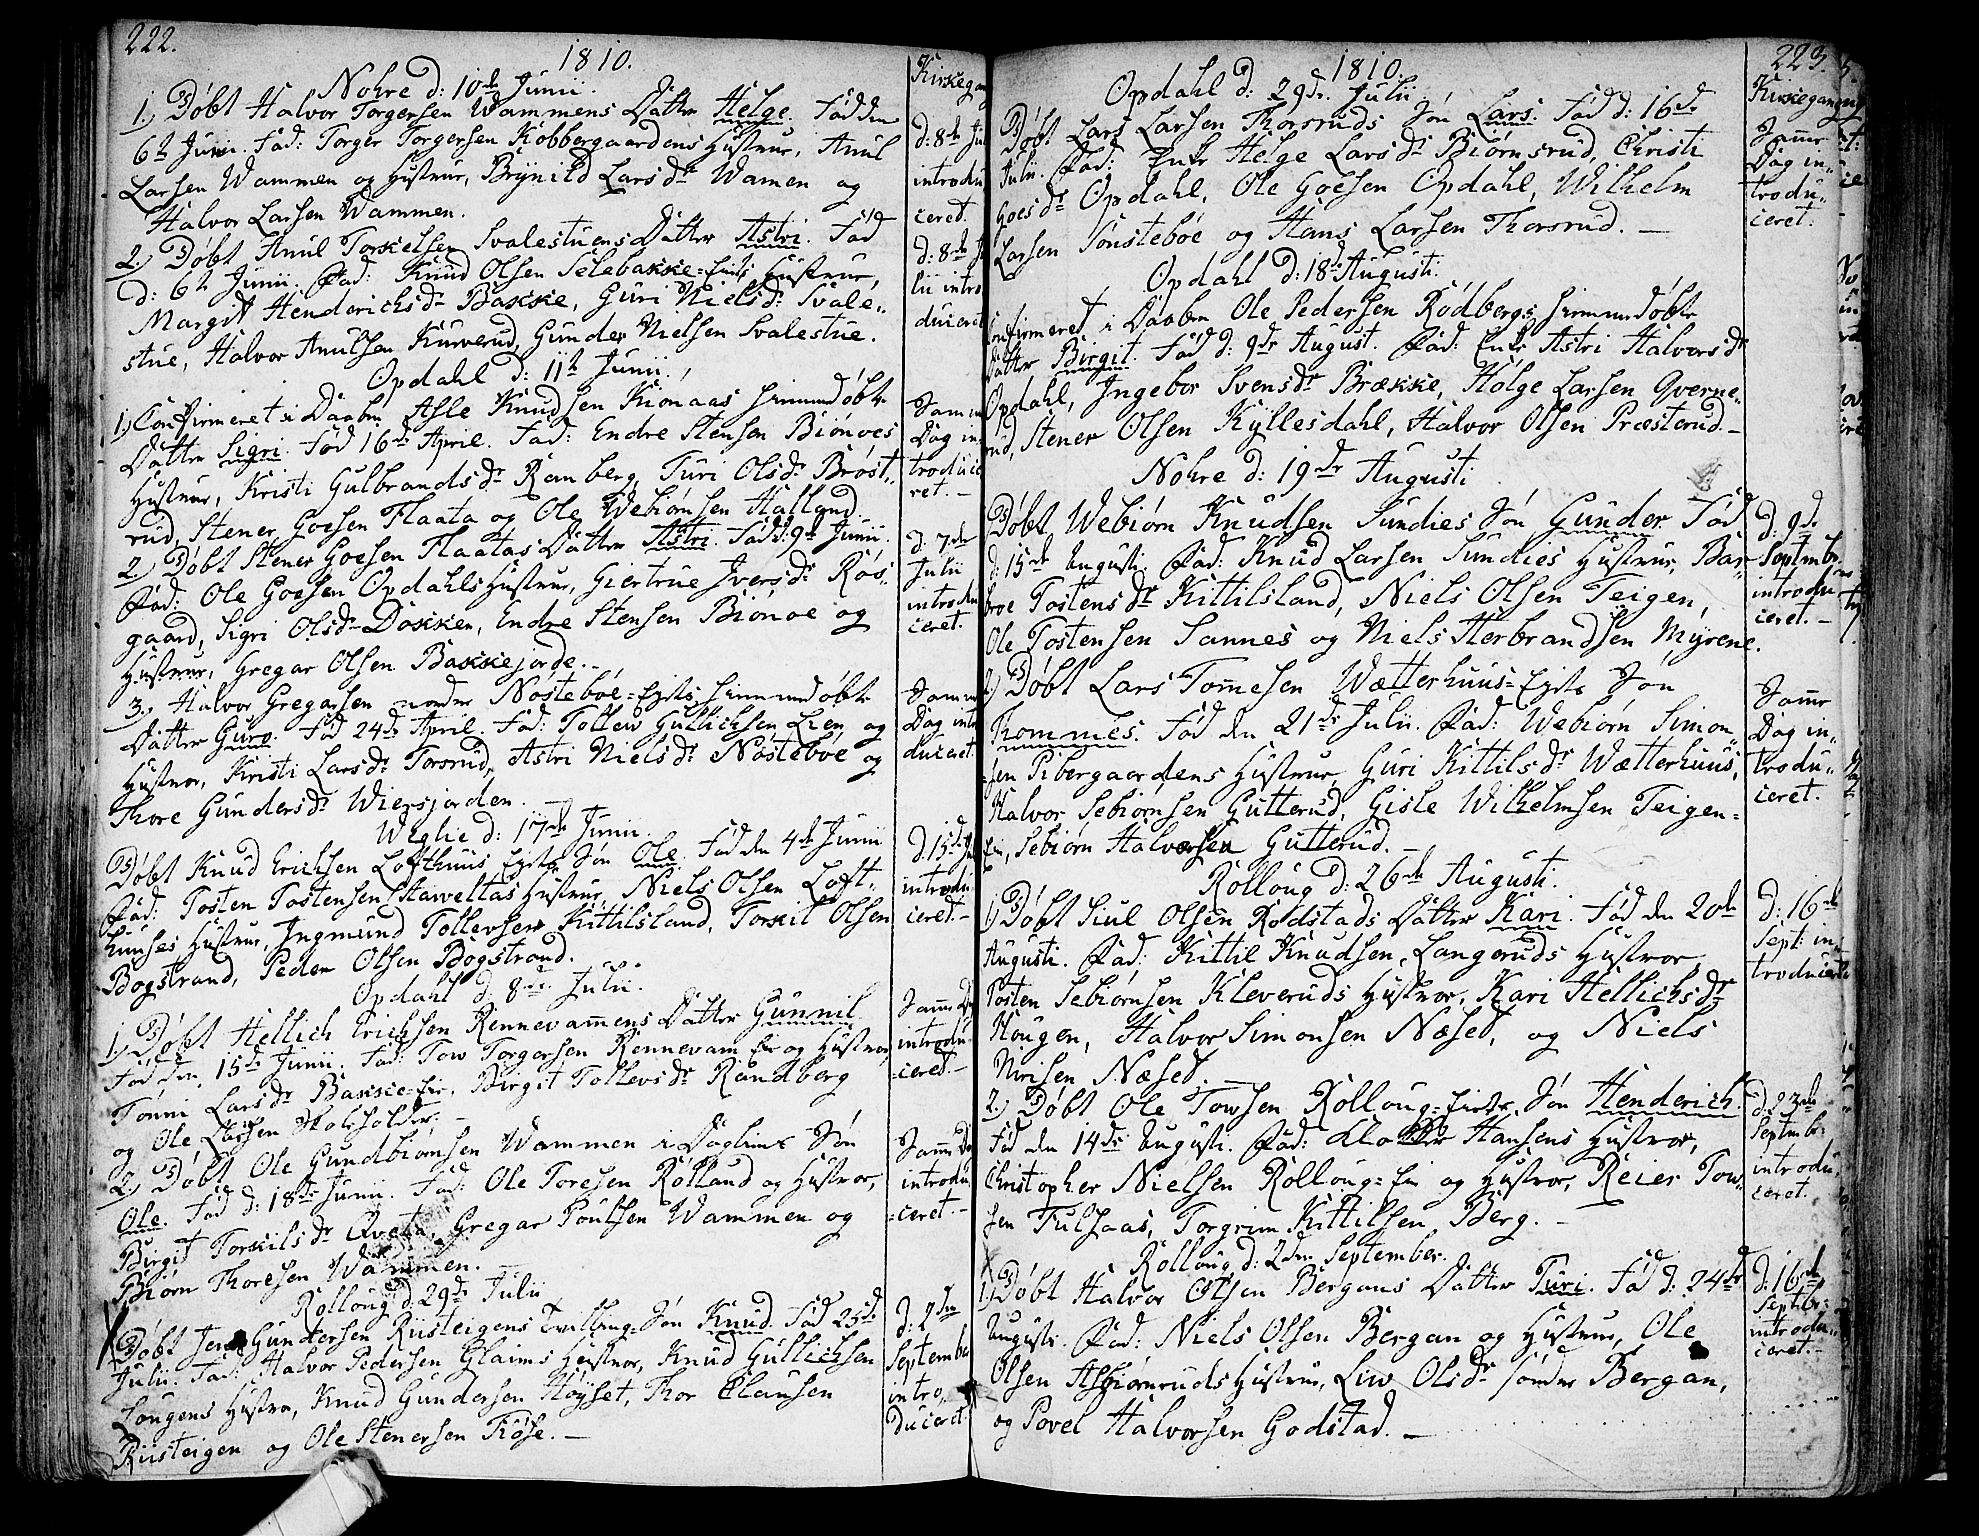 222.
1810.
Nohre d: 10de Junii.
1.) Døbt Halvor Torgersen Wammens Datter Helge. Fød den
6te Junii. Fad: Torger Torgersen Kobbergaardens Hustrue, Anul
Larsen Wammen og Hustrue, Brynild Larsdr Wamen og
Halvor Larsen Wammen.
2.) Døbt Anul Torkielsen Svalestuens Datter Astri. Fød
d: 6te Junii. Fad: Knud Olsen Selebakke-Eiets Hustrue,
Margit Henderichsdr Bakke, Guri Nielsdr Svale-
stue, Halvor Anulsen Kurverud, Gunder Nielsen Svalestue.
Opdahl d: 11te Junii.
1.) Confirmeret i Daaben Asle Knudsen Kionaas hiemmedøbte
Datter Sigri. Fød 16de April. Fad: Endre Stensen Biønoes
Hustrue, Kristi Gulbrandsdr Ramberg, Turi Olsdr Brøst-
rud, Stener Goesen Flaata og Ole Webiørnsen Halland.
2.) Døbt Stener Goesen Flaatas Datter Astri. Fød d: 9de Junii.
Fad: Ole Goesen Opdahls Hustrue, Giertrue Iversdr Røs-
gaard, Sigri Olsdr Dokken, Endre Stensen Biønoe og
Hustrue, Gregar Olsen Bakkejorde.
3.) Halvor Gregarsen nordre Nøsteboe-Eyets hiemmedøbte
Datter Guro. Fød 24de April. Fad: Tollew Gullichsen Lien og
Hustrue, Kristi Larsdr Torsrud, Astri Nielsdr Nøsteboe og
Thore Gundersdr Wiersjorden.
Weglie d: 17de Junii.
Døbt Knud Erichsen Lofthuus Eyets Søn Ole. Fød den 4de Junii
Fad: Tosten Tostensen Staweltas Hustrue, Niels Olsen Loft-
huuses Hustrue, Ingmund Tollevsen Kittilsland, Torkil Olsen
Bogstrand, Peder Olsen Bogstrand.
Opdahl d: 8de Julii.
1.) Døbt Hellich Erichsen Rennevammens Datter Gunnil
Fød den 15de Junii. Fad: Tow Torgersen Rennevam Eie og Hustrue,
Tønni Larsdr Bakke-Eie, Birgit Tollevsdr Randberg
og Ole Larsen Skoleholder.
2.) Døbt Ole Gundbiørnsen Wammen i Daglie Søn
Ole. Fød d: 18de Junii. Fad: Ole Toresen Rolland og Hustrue,
Birgit Torkilsdr Qveta, Gregar Poulsen Wammen og
Biørn Thoresen Wammen.
Rolloug d: 29de Julii
Døbt Jens Gundersen Riisteigens Tvilling-Søn Knud. Fød 25de
Julii. Fad: Halvor Pedersen Glaims Hustrue, Knud Gullichsen
Hougens Hustrue, Knud Gundersen Høyset, Thor Clausen
Riisteigen og Ole Stenersen Frøse.
Kirkegang
d: 8de Ju
introdu
ceret.
d: 8de Ju
lii intro
duceret
Samme
Dag in-
troduce
ret.
d. 7de
Julii
introdu
ceret.
Samme
Dag intro
duceret.
d: 15de Jul
introdu
ceret.
Same Dag
introdu-
ceret.
Same Dag
introdu
ceret.
d: 2den
September
intro-
duceret
223.
1810.
Opdahl d: 29de Julii
Døbt Lars Larsen Thorsruds Søn Lars. Fød d: 16de
Julii. Fad: Enke Helge Larsdr Biørnsrud, Christi
Goesdr Opdahl, Ole Goesen Opdahl, Wilhelm
Larsen Sønsteboe og Hans Larsen Thorsrud.
Opdahl d: 18de Augusti.
Confirmeret i Daaben Ole Pedersen Rødbergs hiemmedøbte
Datter Birgit. Fød d: 9de August. Fad: Enke Astri Halvorsdr
Opdahl, Ingebor Svensdr Brække, Holge Larsen Qverne-
rud, Stener Olsen Kyllesdahl, Halvor Olsen Præsterud.
Nohre d: 19de Augusti
Døbt Webiørn Knudsen Sundies Søn Gunder Fød
d: 15de Augusti. Fad: Knud Larsen Sundies Hustrue, Bar-
broe Tostensdr Kittilsland, Niels Olsen Teigen,
Ole Tostensen Sannes og Niels Herbrandsen Myrene.
2.) Døbt Lars Tomesen Wætterhuus-Eyets Søn
Thommes. Fød den 21de Julii. Fad: Webiørn Simon-
sen Pibergaardens Hustrue, Guri Kittilsdr Wætterhuus,
Halvor Sebiørnsen Gutterud, Gisle Wilhelmsen Teigen-
Eie, Sebiørn Halvorsen Gutterud.
Rolloug d: 26de Augusti.
1.) Døbt Siul Olsen Rodstads Datter Kari. Fød den 20de
Augusti. Fad: Kittil Knudsen Langeruds Hustrue,
Tosten Sebiørnsen Kleveruds Hustrue, Kari Hellichsdr
Hougen, Halvor Simonsen Næset, og Niels
Nirisen Næset.
2.) Døbt Ole Towsen Rolloug-Eiets Søn Henderich.
Fød den 14de Augusti. Fad: Klo Hansens Hustrue,
Christopher Nielsen Rolloug-Eie og Hustrue, Reier Tow-
sen Fulsaas, Torgrim Kittilsen Berg.
Rolloug d: 2den September.
1.) Døbt Halvor Olsen Bergans Datter Turi. Fød d: 24de
Augusti. Fad: Niels Olsen Bergan og Hustrue, Ole
Olsen Asbiørnruds Hustrue, Liw Olsdr søndre Bergan,
og Povel Halvorsen Godstad.
Kirkegang
Samme
Dag in-
trodu-
ceret.
d: 9de
Septembr
introdu
ceret.
Samme
Dag in-
trodu-
ceret.
d: 16de
Sept: in-
troduceret
d: 23de
Septembr
introdu
ceret.
d: 16de
Septbr:
introdu-
ceret.